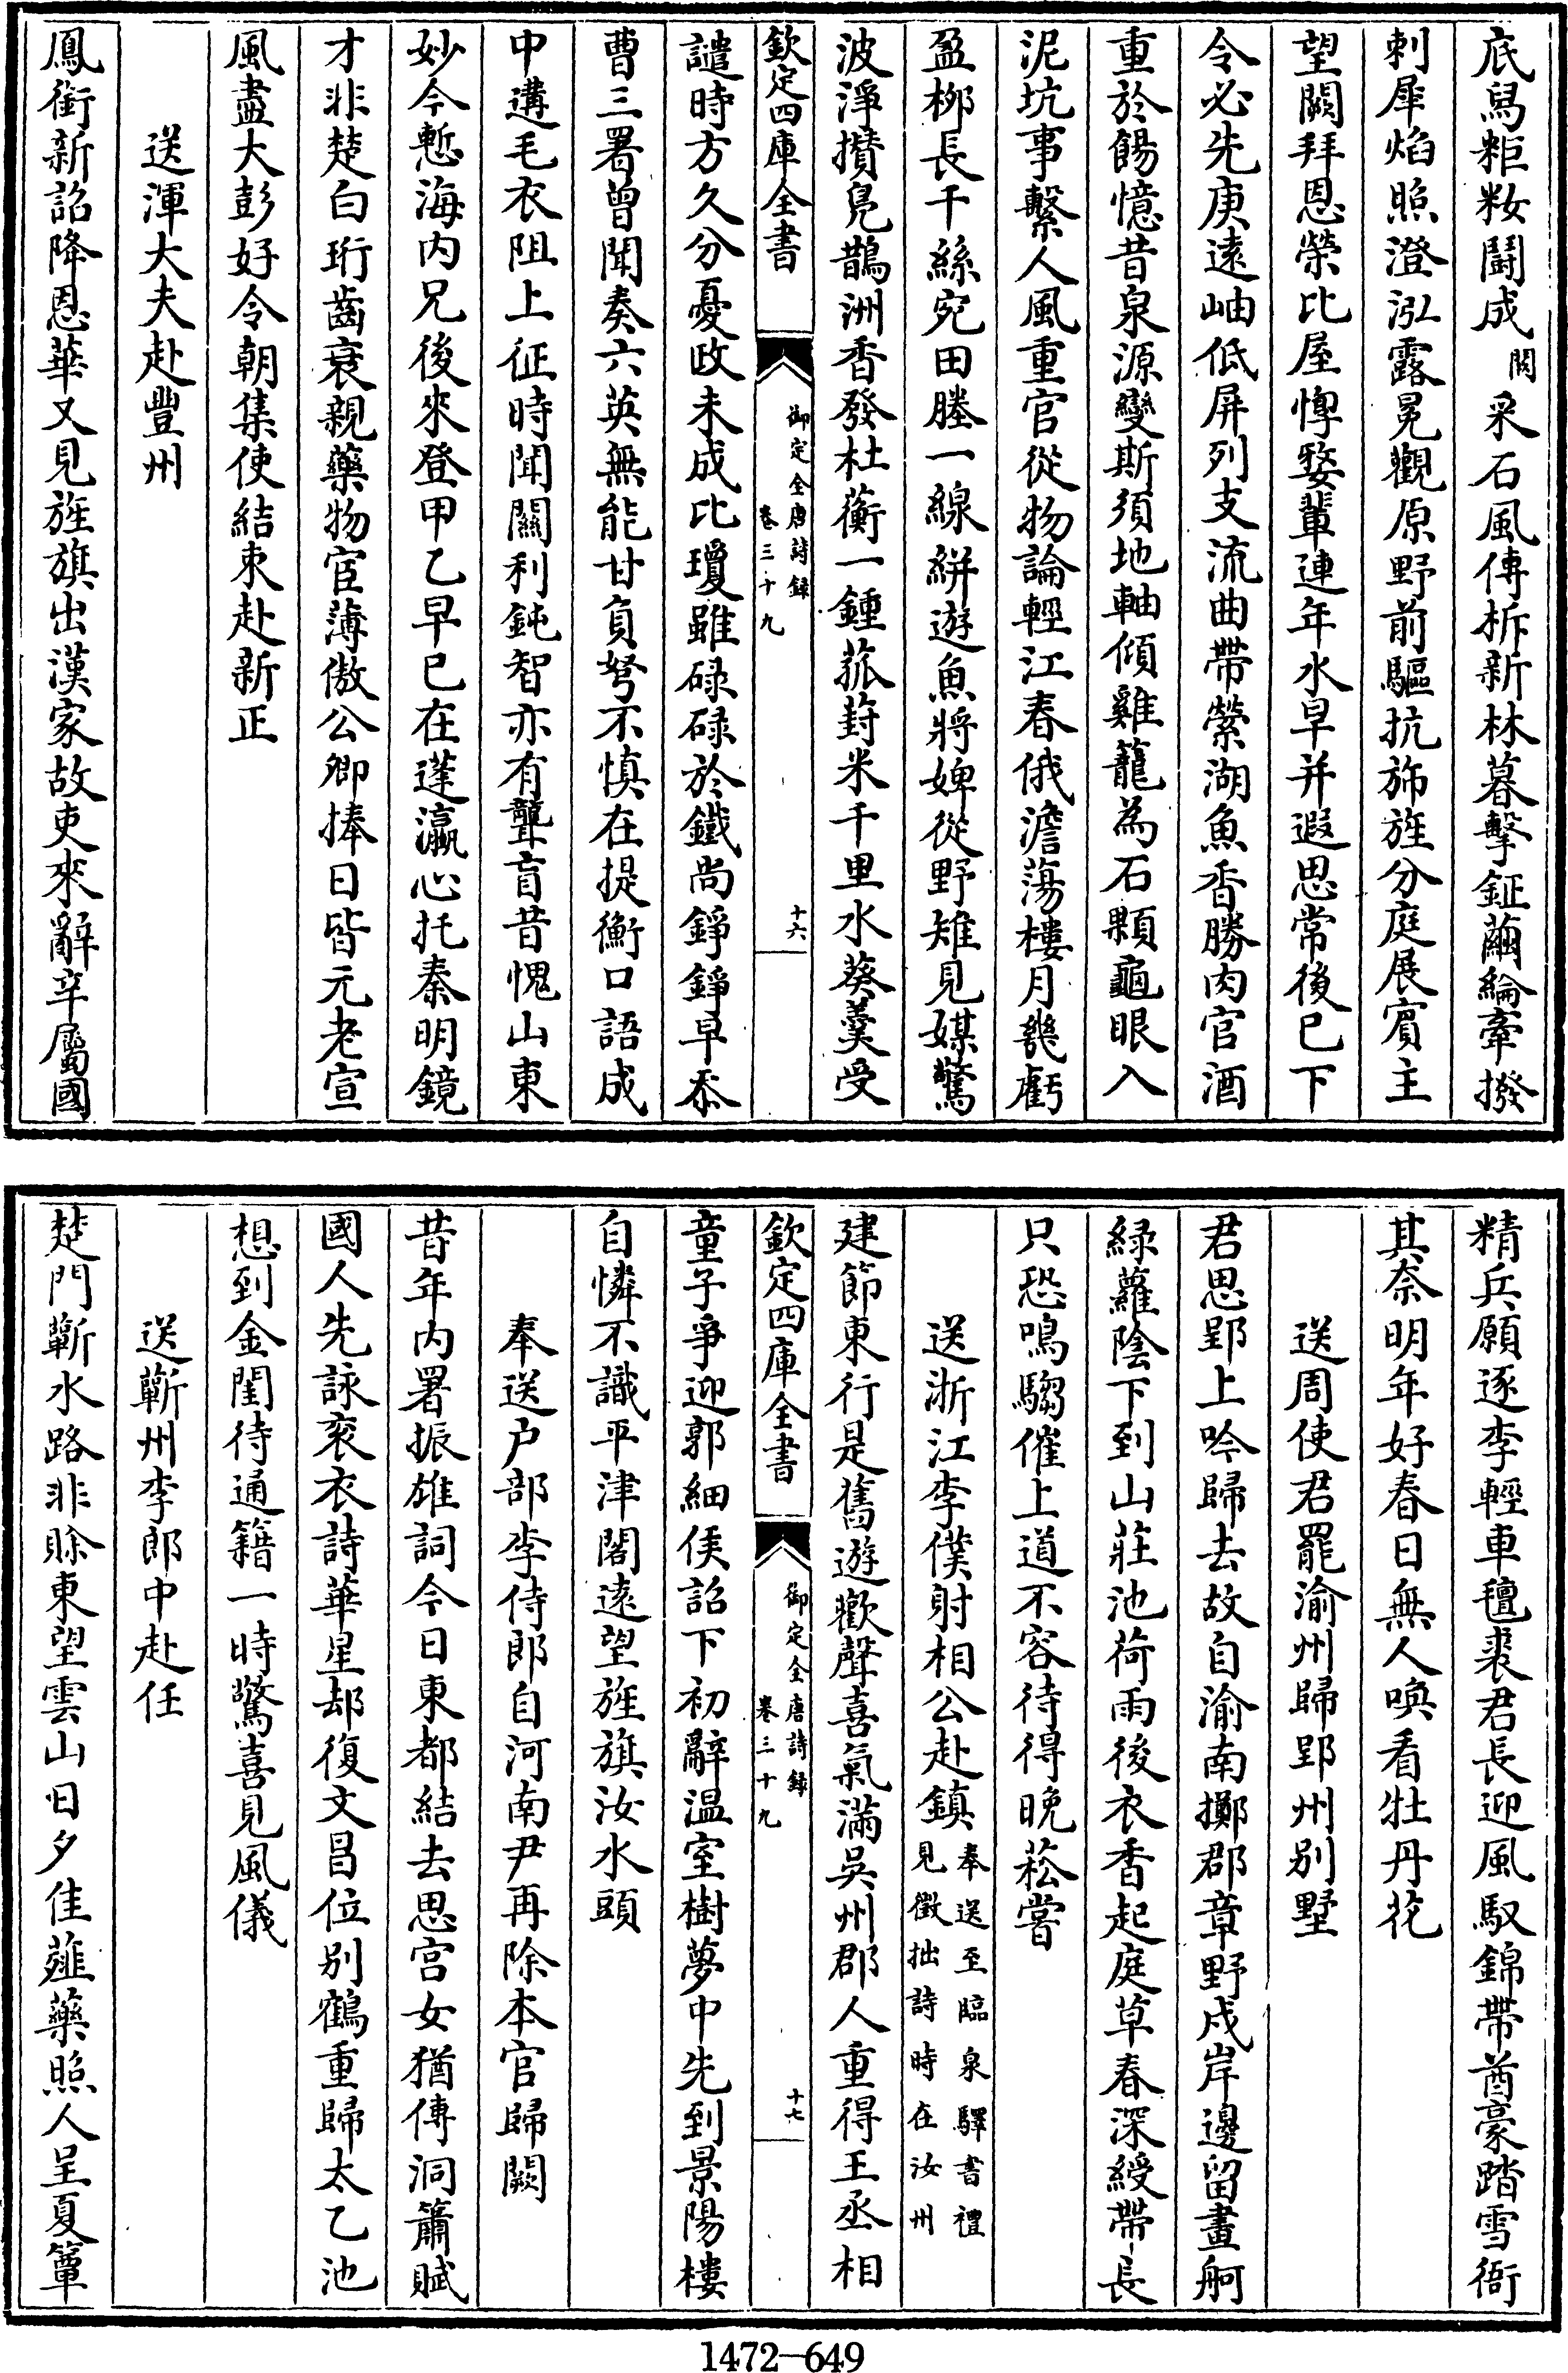 底舄粔籹鬭成闕采石風傳柝新林暮擊鉦繭綸牽撥
刺犀焰照澄泓露冕觀原野前驅抗斾旌分庭展賓主
望闕拜恩榮比屋惸嫠輩連年水旱并遐思常後已下
令必先庚遠岫低屏列支流曲帶縈湖魚香勝肉官酒
重於餳憶昔泉源變斯須地軸傾雞籠為石顆龜眼入
泥坑事繫人風重官從物論輕江春俄澹蕩樓月幾虧
盈桞長千絲宛田塍一線絣遊魚將婢從野雉見媒驚
波淨攢鳧鵲洲香發杜蘅一鍾菰葑米千里水葵羹受
欽定四庫全書
御定全唐詩録
卷三十九
十六
譴時方久分憂政未成比瓊雖碌碌於鐵尚錚錚早忝
曹三署曾聞奏六英無能甘負弩不慎在提衡口語成
中遘毛衣阻上征時聞關利鈍智亦有聾盲昔愧山東
妙今慙海内兄後來登甲乙早已在蓬瀛心托秦明鏡
才非楚白珩齒衰親藥物宦薄傲公卿捧日皆元老宣
風盡大彭好令朝集使結束赴新正
送渾大夫赴豐州
鳳銜新詔降恩華又見旌旗出漢家故吏來辭辛屬國
精兵願逐李輕車氊裘君長迎風馭錦帶酋豪踏雪衙
其奈明年好春日無人喚看牡丹花
送周使君罷渝州歸郢州别墅
君思郢上吟歸去故自渝南擲郡章野戍岸邊留畫舸
緑蘿陰下到山莊池荷雨後衣香起庭草春深綬帶長
只恐鳴騶催上道不容待得晚菘嘗
送浙江李僕射相公赴鎮奉送至臨泉驛書禮見徵拙詩時在汝州
建節東行是舊遊歡聲喜氣滿吳州郡人重得王丞相
欽定四庫全書
御定全唐詩録
卷三十九
十七
童子爭迎郭細侯詔下初辭温室樹夢中先到景陽樓
自憐不識平津閣遠望旌旗汝水頭
奉送户部李侍郎自河南尹再除本官歸闕
昔年内署振雄詞今日東都結去思宫女猶傳洞簫賦
國人先詠衮衣詩華星却復文昌位别鶴重歸太乙池
想到金閨待通籍一時驚喜見風儀
送蘄州李郎中赴任
楚門蘄水路非賒東望雲山日夕佳薤藥照人呈夏簟
1472-649